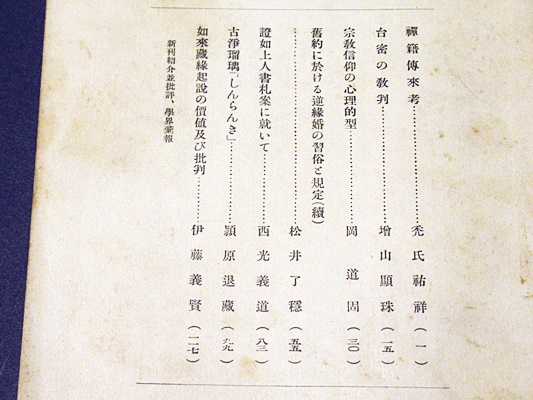 禪籍傳來考……………………禿氏祐祥（一）
台密の敎判……………………增山顯珠（一五）
宗敎信仰の心理的型……………岡道固（三〇）
舊約に於ける逆緣婚の習俗と規定(續)
……………………松井了穩（五五）
證如上人書札案に就いて…………西光義道（八三）
古淨瑠璃「しんらんき」……………頴原退藏（九九）
如來藏緣起說の價値及び批判………伊藤義賢（一二七）
新刊紹介並批評、學界彙報